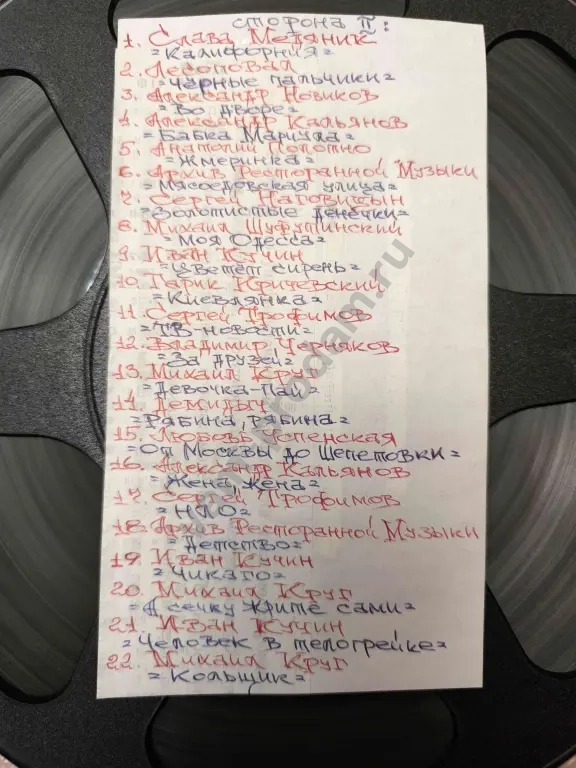 сторона II:
1. Слава Медяник
=Калифорния=
2. Лесоповал
=Чёрные пальчики=
3. Александр Новиков
=Во дворе=
4. Александр Кальянов
=Бабка Маришла=
5. Анатолий Полотно
=Жмеринка=
6. Архив Ресторанной Музыки
=Мясоедовская улица=
7. Сергей Наговицын
=Золотистые денёчки=
8. Михаил Шуфутинский
=Моя Одесса=
9. Иван Кучин
=Цветёт сирень=
10. Гарик Кричевский
=Киевлянка=
11. Сергей Трофимов
=ТВ-новости=
12. Владимир Черняков
=За друзей=
13. Михаил Круг
=Девочка-Пай=
14. Демидыч
=Рябина, рябина=
15. Любовь Успенская
=От Москвы до Шепетовки=
16. Александр Кальянов
=Жена, жена=
17. Сергей Трофимов
=НЛО=
18. Архив Ресторанной Музыки
=Детство=
19. Иван Кучин
=Чикаго=
20. Михаил Круг
=А сечку жрите сами=
21. Иван Кучин
=Человек в телогрейке=
22. Михаил Круг
=Кольщик=